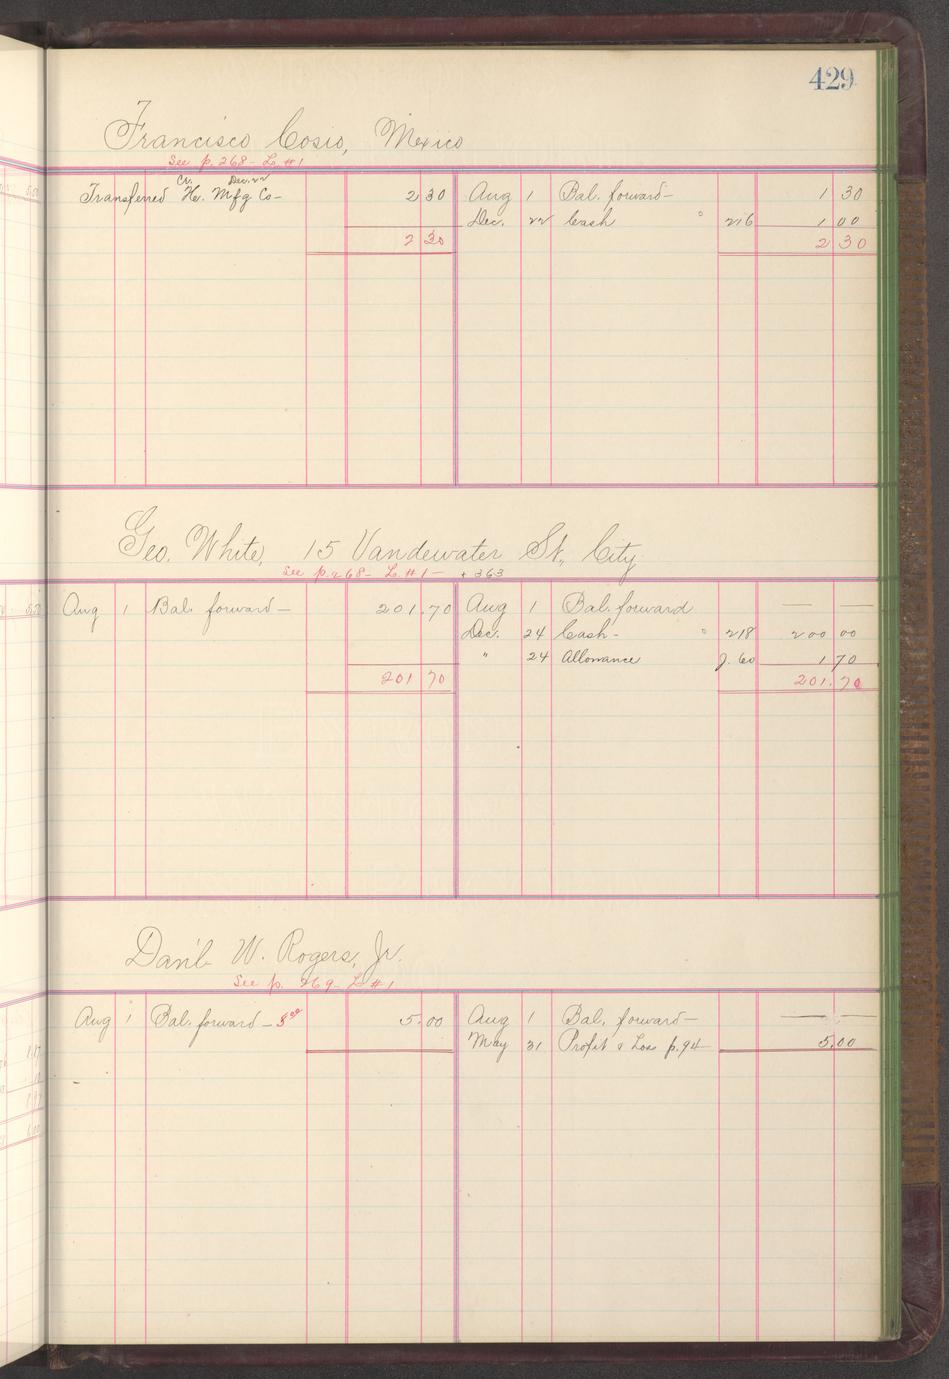 429
Francisco Cosio, Mexico
See p. 268 - L. #1
Cr. Dec. 22
Transferred H. Mfg Co - 2 30 Aug 1 Bal. forward - 1 30
Dec. 22 Cash " 216 1 00
2 30 2 30
Geo. White, 15 Vandewater St., City
See p. 268 - L. #1 - + 363
Aug 1 Bal. forward - 201.70 Aug 1 Bal. forward — —
Dec. 24 Cash - " 218 200 00
" 24 Allowance J. 60 1 70
201 70 201.70
Dan'l W. Rogers, Jr.
See p. 269 - L #1
Aug 1 Bal. forward - 5.00 5.00 Aug 1 Bal. forward - —
May 31 Profit & Loss p. 94 - 5.00